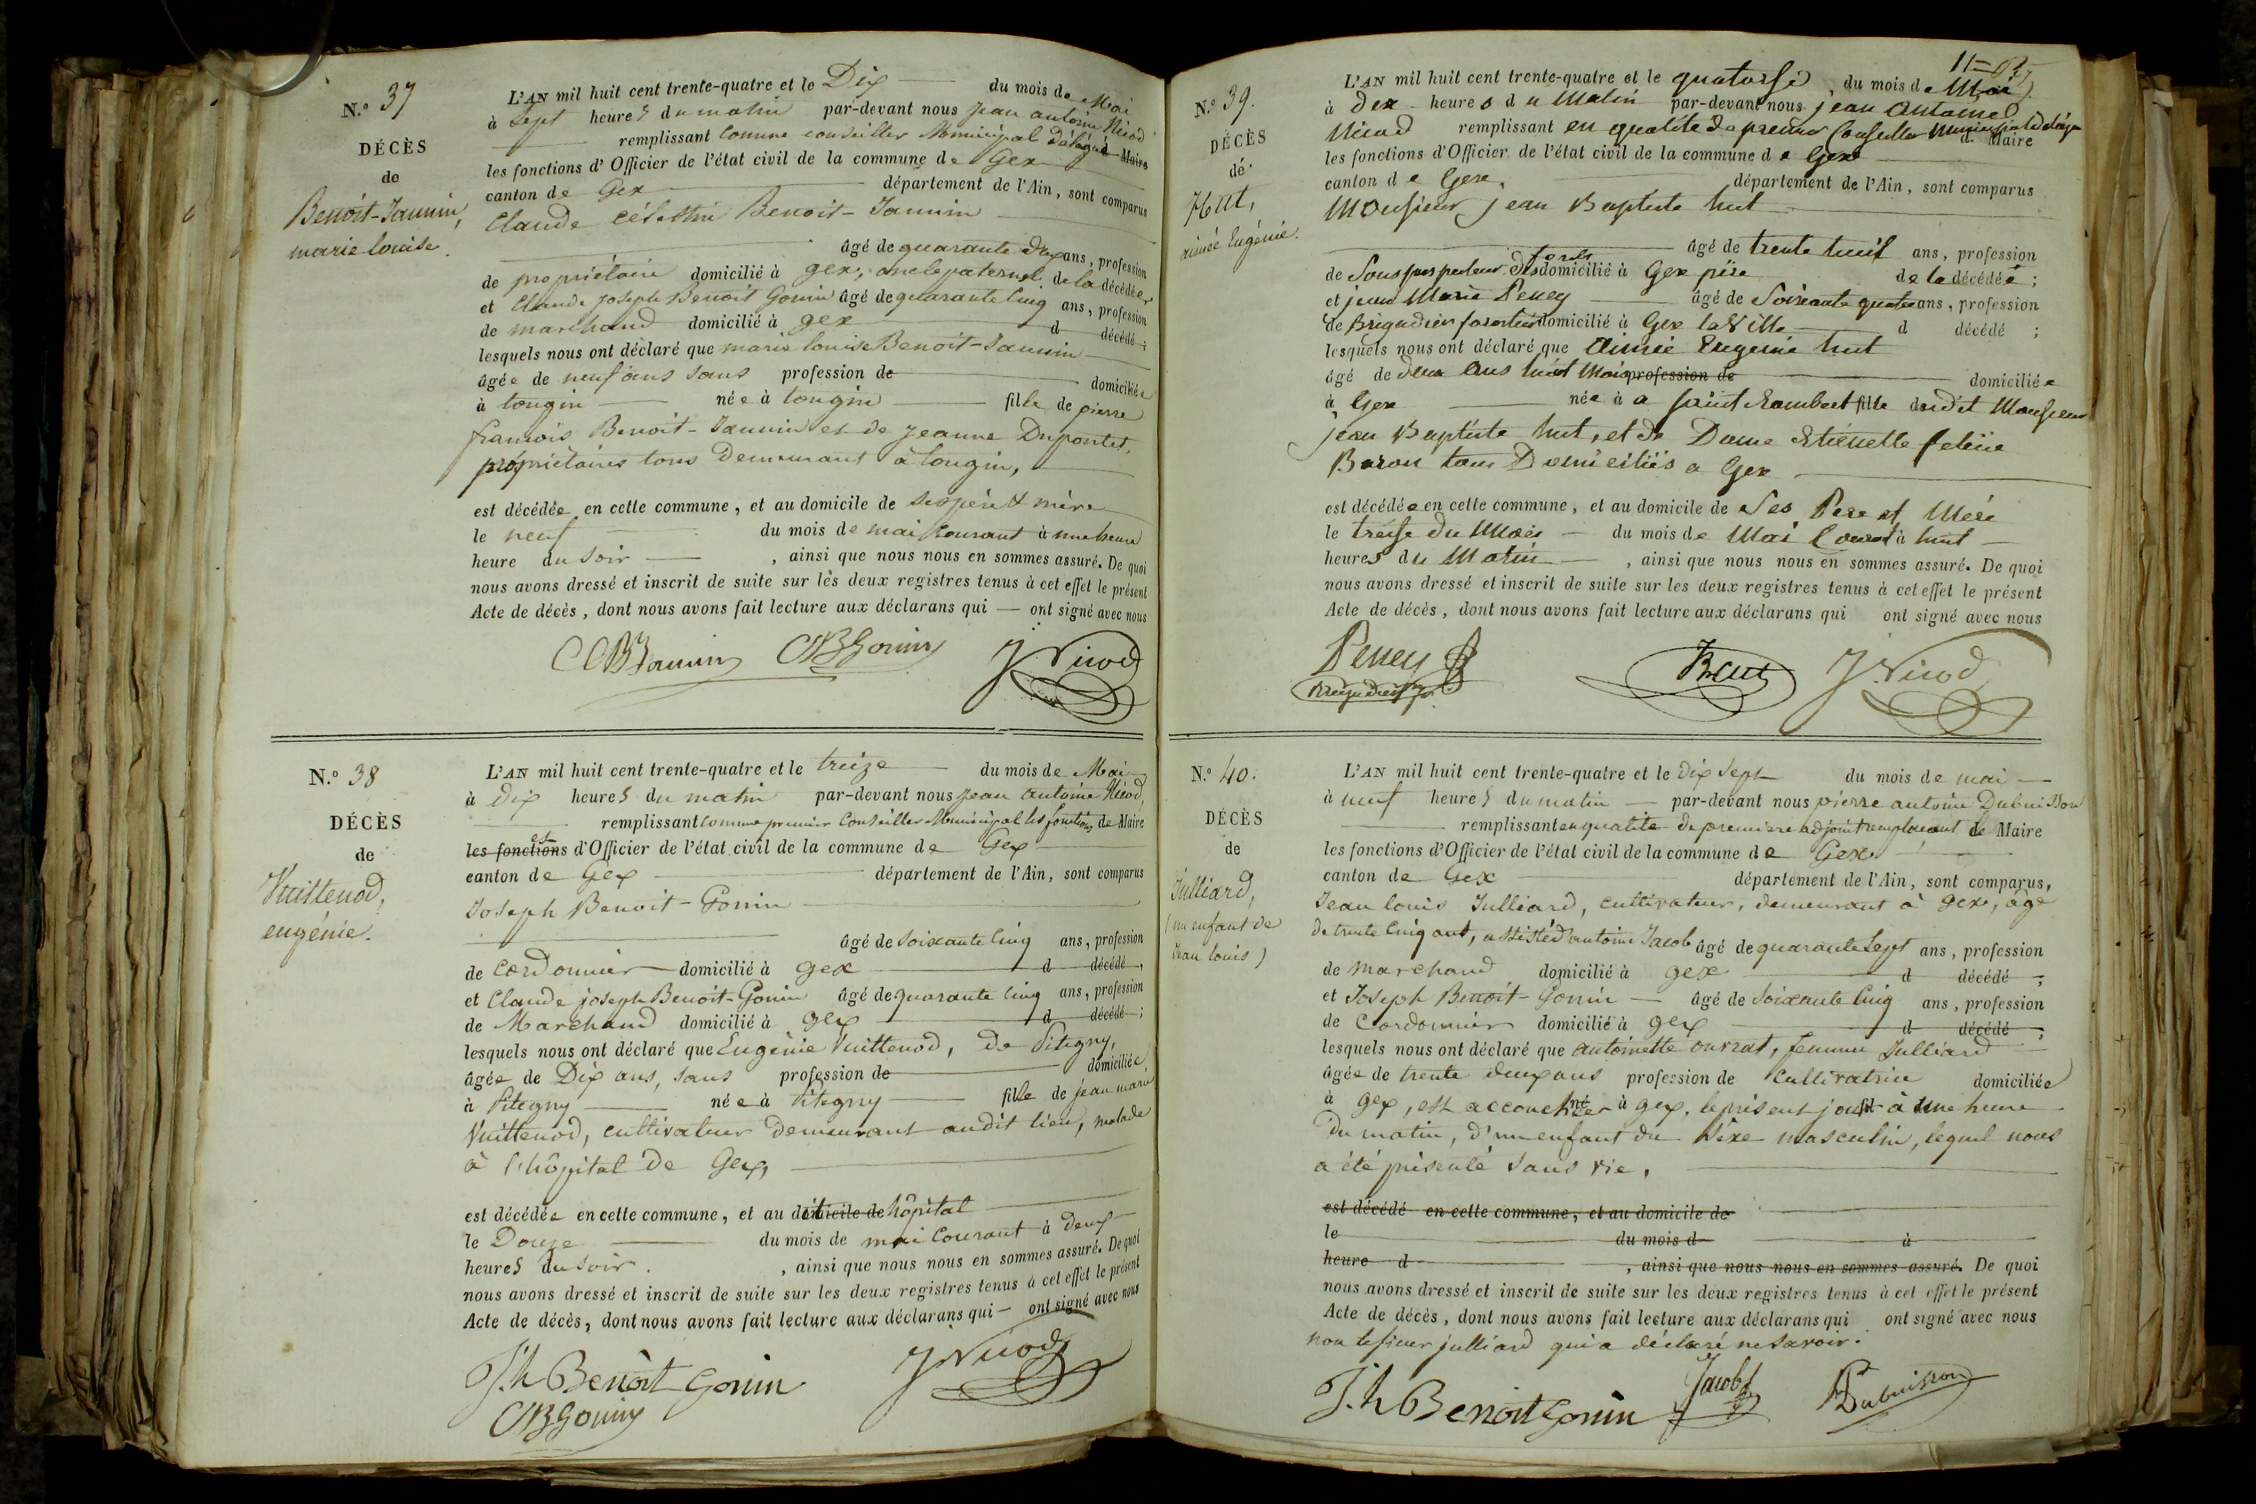 N.º 37
DÉCÈS
de
Benoit-Jannin,
marie louise.
L'AN mil huit cent trente-quatre et le Dix du mois de Mai
à Sept heures du matin par-devant nous jean antoine Nicod
remplissant comme conseiller Municipal délégué Maire
les fonctions d'Officier de l'état civil de la commune de Gex
canton de Gex département de l'Ain, sont comparus
Claude Célestin Benoit-Jannin
âgé de quarante Deux ans, profession
de propriétaire domicilié à gex, oncle paternel de la décédée,
et Claude joseph Benoit Gonin âgé de quarante Cinq ans, profession
de marchand domicilié à gex d décédé ;
lesquels nous ont déclaré que marie louise Benoit-Jannin
âgée de neuf ans sans profession de domiciliée
à tougin née à tougin fille de pierre
françois Benoit-Jannin et de jeanne Dupontet,
propriétaires tous demeurant à tougin,
est décédée en cette commune, et au domicile de ses père et mère
le neuf du mois de mai Courant à une heure
heure du soir , ainsi que nous nous en sommes assuré. De quoi
nous avons dressé et inscrit de suite sur lès deux registres tenus à cet effet le présent
Acte de décès, dont nous avons fait lecture aux déclarans qui — ont signé avec nous
CCBJannin CJBGonin J Nicod
N.º 38
DÉCÈS
de
Vuittenod,
eugénie.
L'AN mil huit cent trente-quatre et le treize du mois de Mai
à Dix heures du matin par-devant nous jean antoine Nicod,
remplissant comme premier Conseiller Municipal les fonctions de Maire
et
les fonctions d'Officier de l'état civil de la commune de Gex
canton de Gex département de l'Ain, sont comparus
Joseph Benoit-Gonin
âgé de soixante Cinq ans, profession
de cordonnier domicilié à gex d décédé ,
et Claude joseph Benoit-Gonin âgé de quarante cinq ans, profession
de Marchand domicilié à gex d décédé ;
lesquels nous ont déclaré que Eugénie Vuittenod, de Pitegny,
âgée de Dix ans, sans profession de domiciliée
à Pitegny née à Pitegny fille de jean marie
Vuittenod, cultivateur demeurant audit lieu, malade
à l'hôpital de Gex,
est décédée en cette commune, et au dit domicile de hôpital
le Douze du mois de mai Courant à deux
heures du soir. , ainsi que nous nous en sommes assuré. De quoi
nous avons dressé et inscrit de suite sur les deux registres tenus à cet effet le présent
Acte de décès, dont nous avons fait lecture aux déclarans qui — ont signé avec nous
J.h Benoit Gonin J Nicod
CJBGonin
N.º 39.
DÉCÈS
de
Hut,
aimée Eugénie.
L'AN mil huit cent trente-quatre et le quatorse du mois de Mai
à dix heures du Matin par-devant nous jean Antoine
Nicod remplissant en qualité de premier Conseiller Municipal délégué d Maire
les fonctions d'Officier de l'état civil de la commune de Gex
canton de Gex, département de l'Ain, sont comparus
Monsieur jean Baptiste hut
âgé de trente huit ans, profession
forets
de Sous inspecteur des domicilié à Gex père de la décédée ;
et jean Marie Peney âgé de Soixante quatre ans, profession
de Brigadier forestier domicilié à Gex la Ville d décédé ;
lesquels nous ont déclaré que Aimée Eugenie hut
âgé de deux ans huit Mois profession de domiciliée
à Gex née à a saint Rambert fille dudit Monsieur
jean Baptiste hut, et de Dame Etiénette
Baron tous Domiciliés a Gex
est décédée en cette commune, et au domicile de Ses Pere et Mére
le treise du Mois du mois de Mai Courant à huit
heures du Matin , ainsi que nous nous en sommes assuré. De quoi
nous avons dressé et inscrit de suite sur les deux registres tenus à cet effet le présent
Acte de décès, dont nous avons fait lecture aux déclarans qui ont signé avec nous
Peney Hut J. Nicod
N.º 40.
DÉCÈS
de
Julliard,
(un enfant de
Jean louis)
L'AN mil huit cent trente-quatre et le Dix sept du mois de mai
à neuf heures du matin par-devant nous pierre antoine Dubuisson
remplissant en qualité de premiere adjoint remplacant le Maire
les fonctions d'Officier de l'état civil de la commune de Gex
canton de Gex département de l'Ain, sont comparus,
Jean louis Julliard, cultivateur, demeurant à gex, âgé
de trente Cinq ans, assisté d'antoine Jacob âgé de quarante Sept ans, profession
de marchand domicilié à gex d décédé ;
et Joseph Benoit-Gonin âgé de soixante Cinq ans, profession
de Cordonnier domicilié à gex d décédé ;
lesquels nous ont déclaré que antoinette ouvrat, femme Julliard
âgée de trente deux ans profession de Cultivatrice domiciliée
à gex, est accouchée à gex, le présent jour à une heure
du matin, d'un enfant du sexe masculin, lequel nous
a été présenté sans vie.
est décédé en cette commune, et au domicile de
le du mois d à
heure d , ainsi que nous nous en sommes assuré. De quoi
nous avons dressé et inscrit de suite sur les deux registres tenus à cet effet le présent
Acte de décès, dont nous avons fait lecture aux déclarans qui ont signé avec nous
non le sieur julliard qui a déclaré ne savoir.
J.h Benoit Gonin Jacob Dubuisson